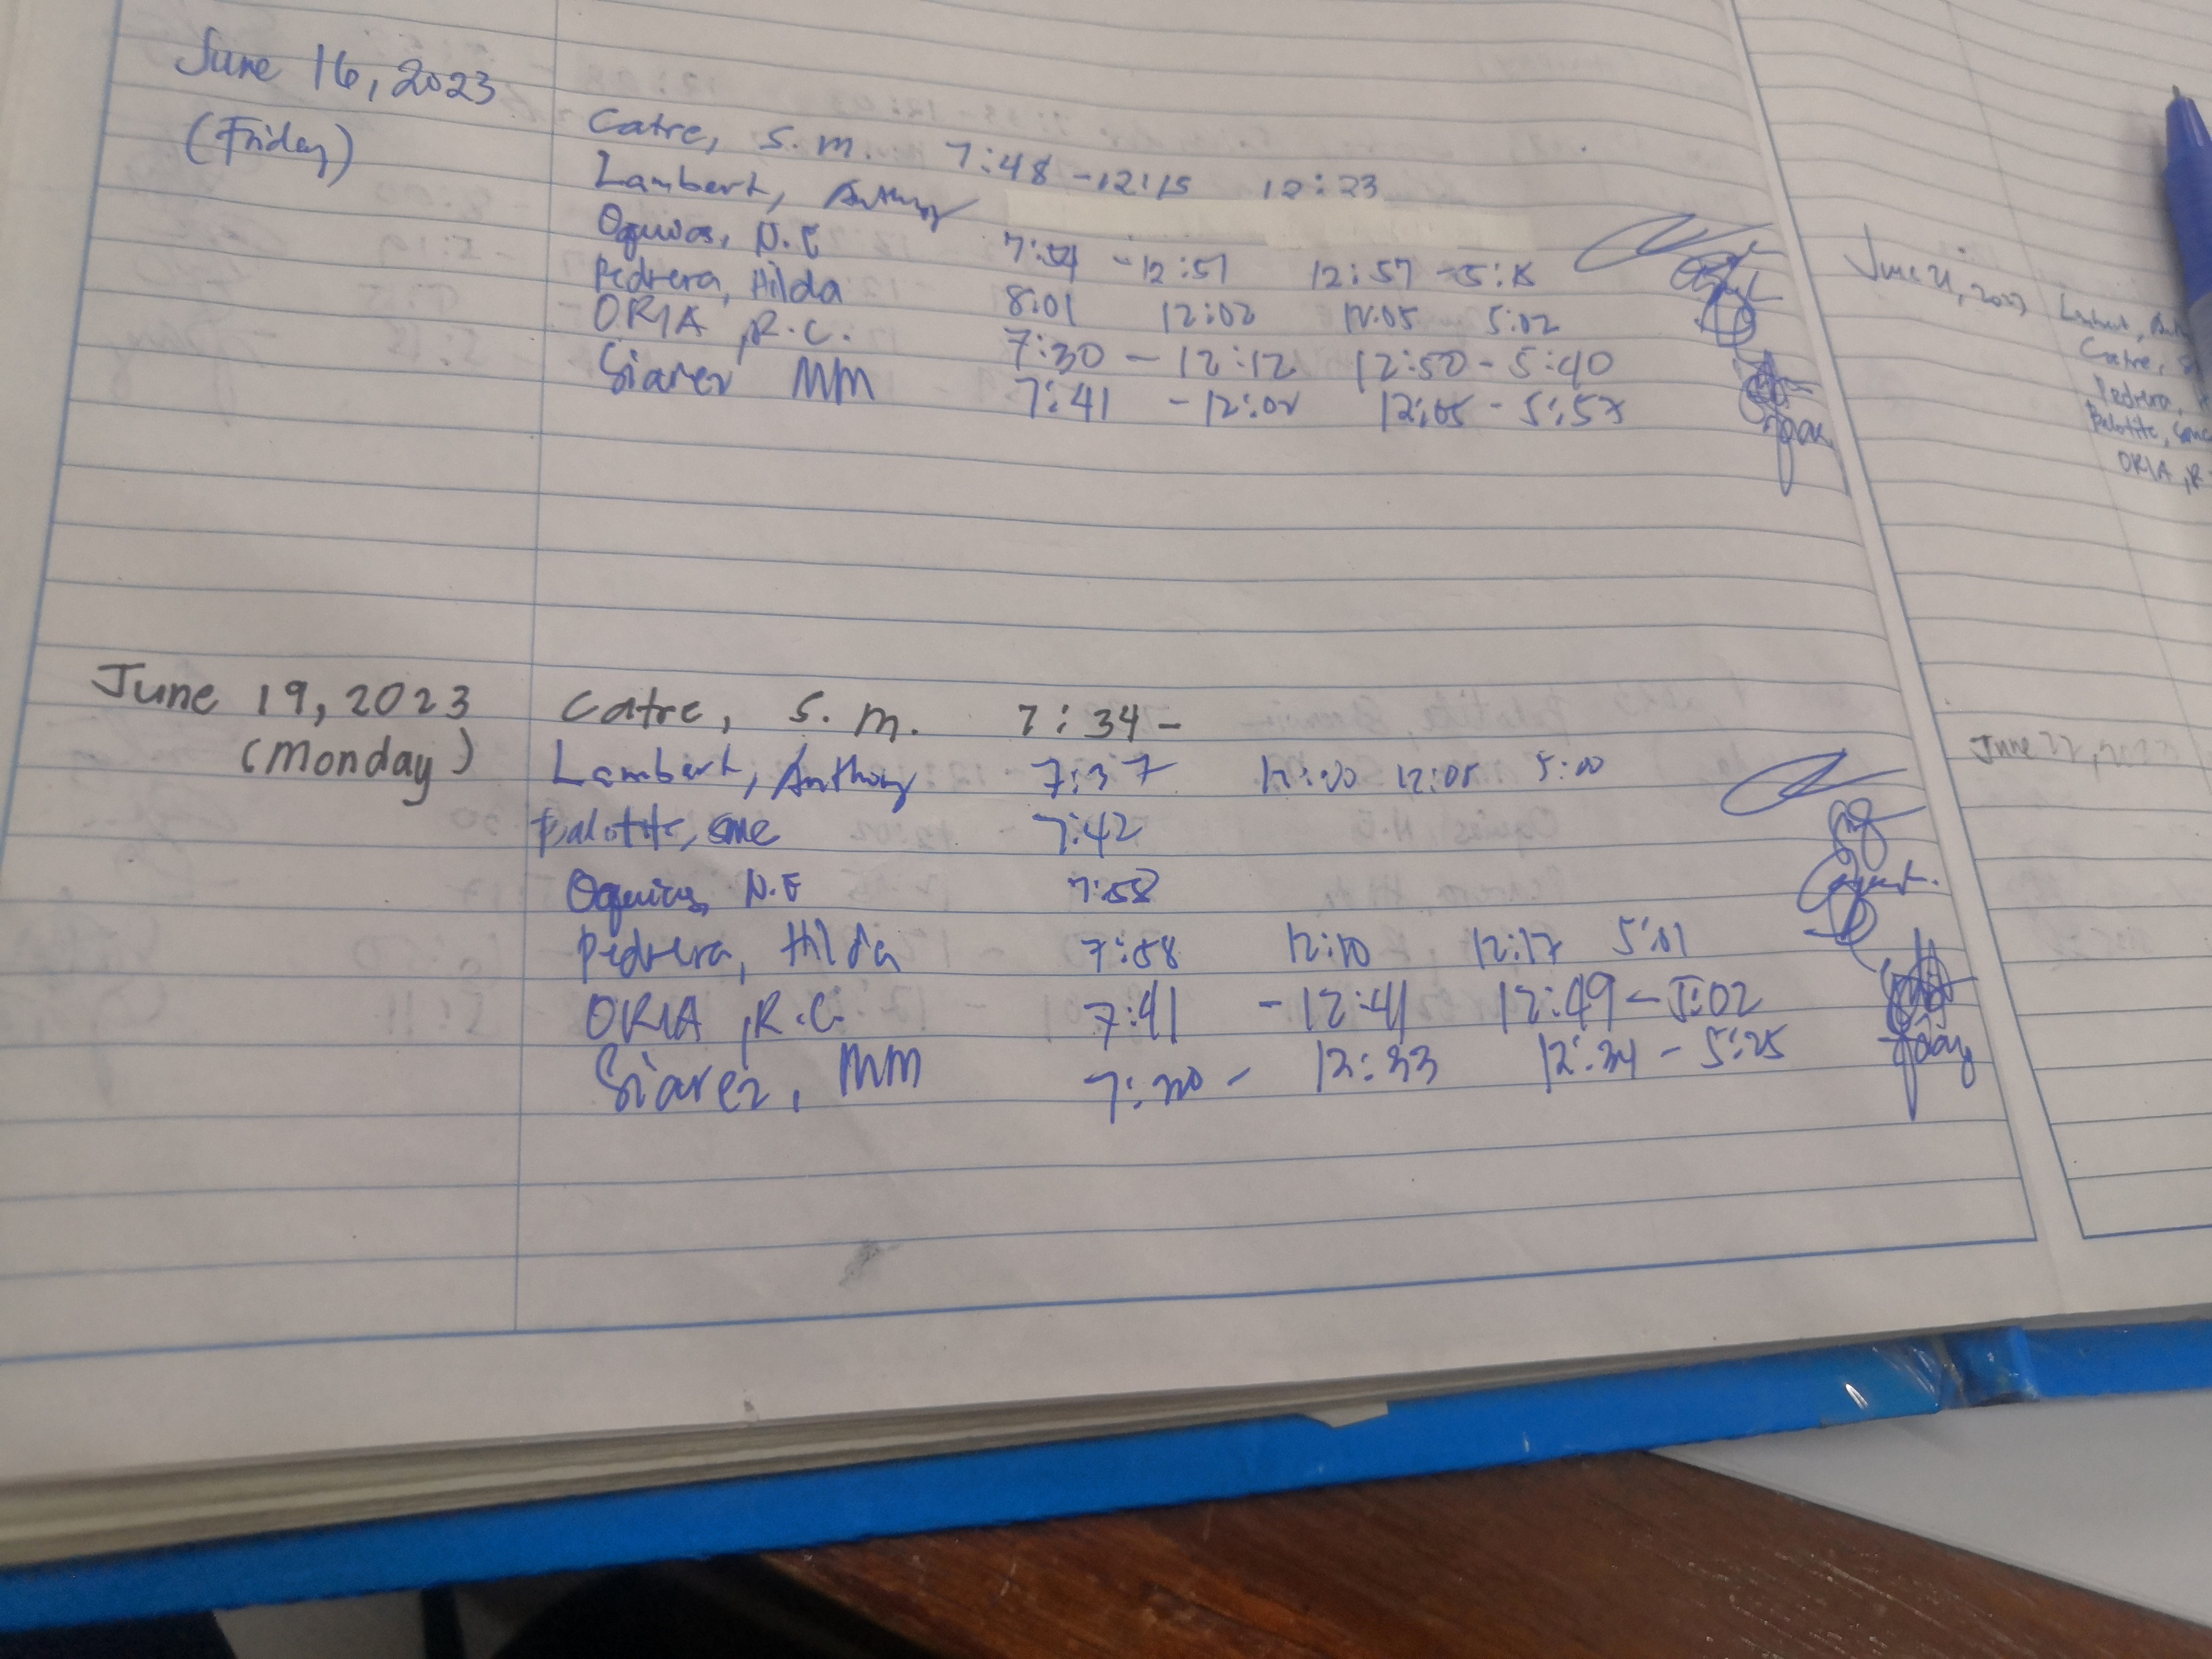 June 16, 2023
(Friday)
Catre, S. M. 7:48 - 12:15 12:23
Lambert, Anthony
Oquias, N.E 7:54 - 12:51 12:57 - 5:15
Pedrera, Hilda 8:01 12:02 12:05 5:02
ORIA, R.C. 7:30 - 12:12 12:50 - 5:40
Siarez MM 7:41 - 12:02 12:05 - 5:57
June 19, 2023
(Monday)
Catre, S. M. 7:34 -
Lambert, Anthony 7:37 12:00 12:05 5:00
7:42
Oquias, N.E 7:58
Pedrera, Hilda 7:58 12:10 12:17 5:01
ORIA, R.C. 7:41 - 12:41 12:49 - 5:02
Siarez, MM 7:20 - 12:33 12:34 - 5:25
June 21, 2023
Lambert,
Catre, S
Pedrera,
ORIA, R
June 22, 2023